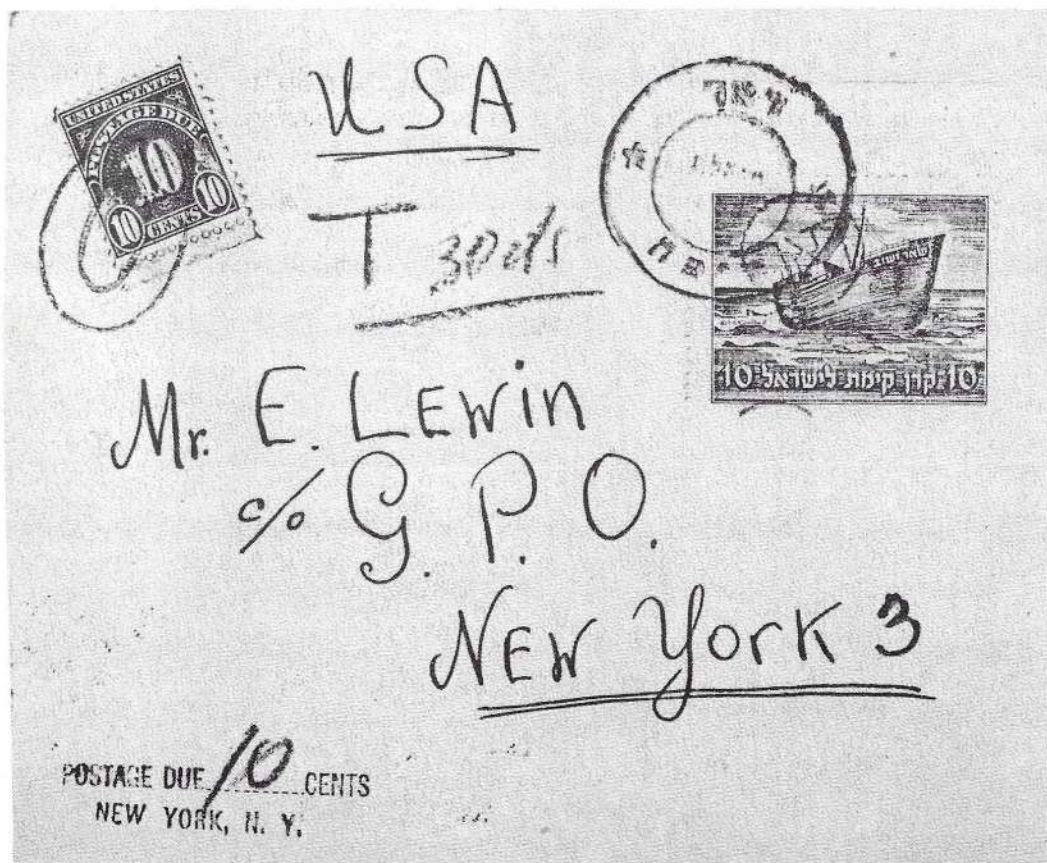 UNITED STATES
POSTAGE DUE
10
10 CENTS 10
USA
T 30cts
דואר
שאר ישוב
10 קרן קימת לישראל 10
Mr. E. LEWin
c/o G. P. O.
NEW York 3
POSTAGE DUE 10 CENTS
NEW YORK, N. Y.